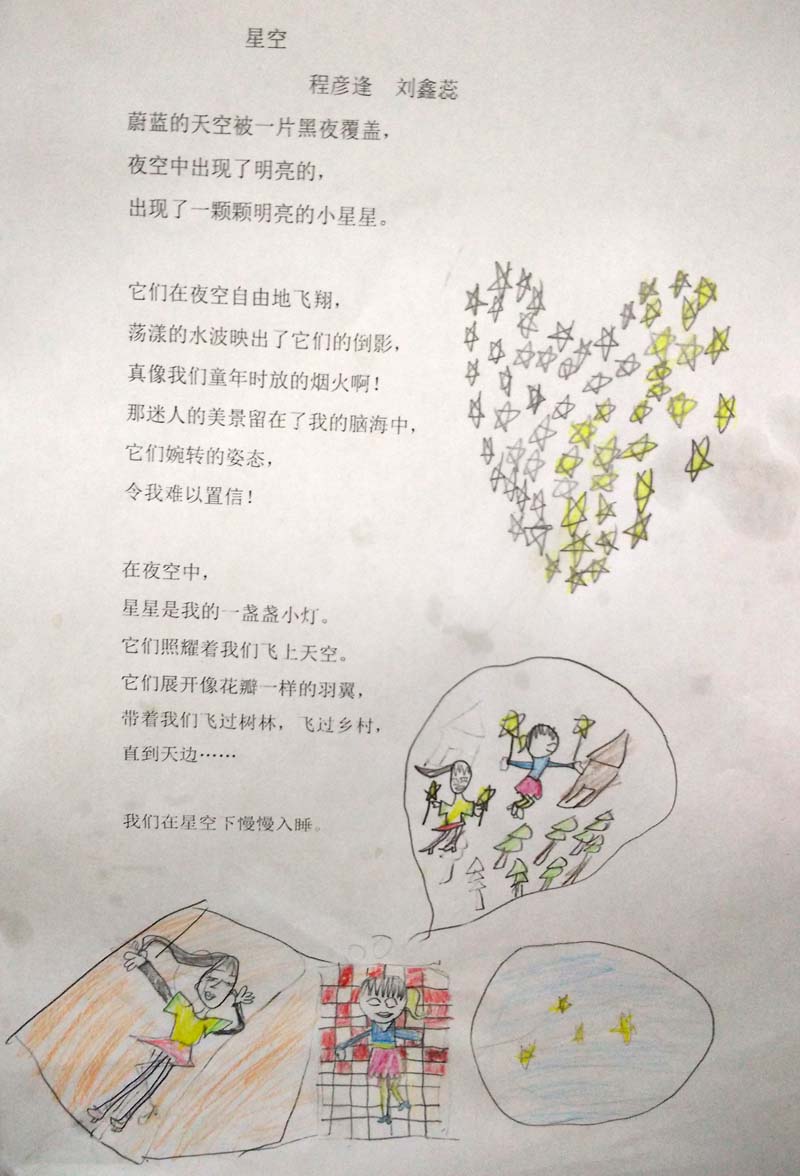 星空
程彦逢 刘鑫蕊
蔚蓝的天空被一片黑夜覆盖，
夜空中出现了明亮的，
出现了一颗颗明亮的小星星。
它们在夜空自由地飞翔，
荡漾的水波映出了它们的倒影，
真像我们童年时放的烟火啊！
那迷人的美景留在了我的脑海中，
它们婉转的姿态，
令我难以置信！
在夜空中，
星星是我的一盏盏小灯。
它们照耀着我们飞上天空。
它们展开像花瓣一样的羽翼，
带着我们飞过树林，飞过乡村，
直到天边……
我们在星空下慢慢入睡。